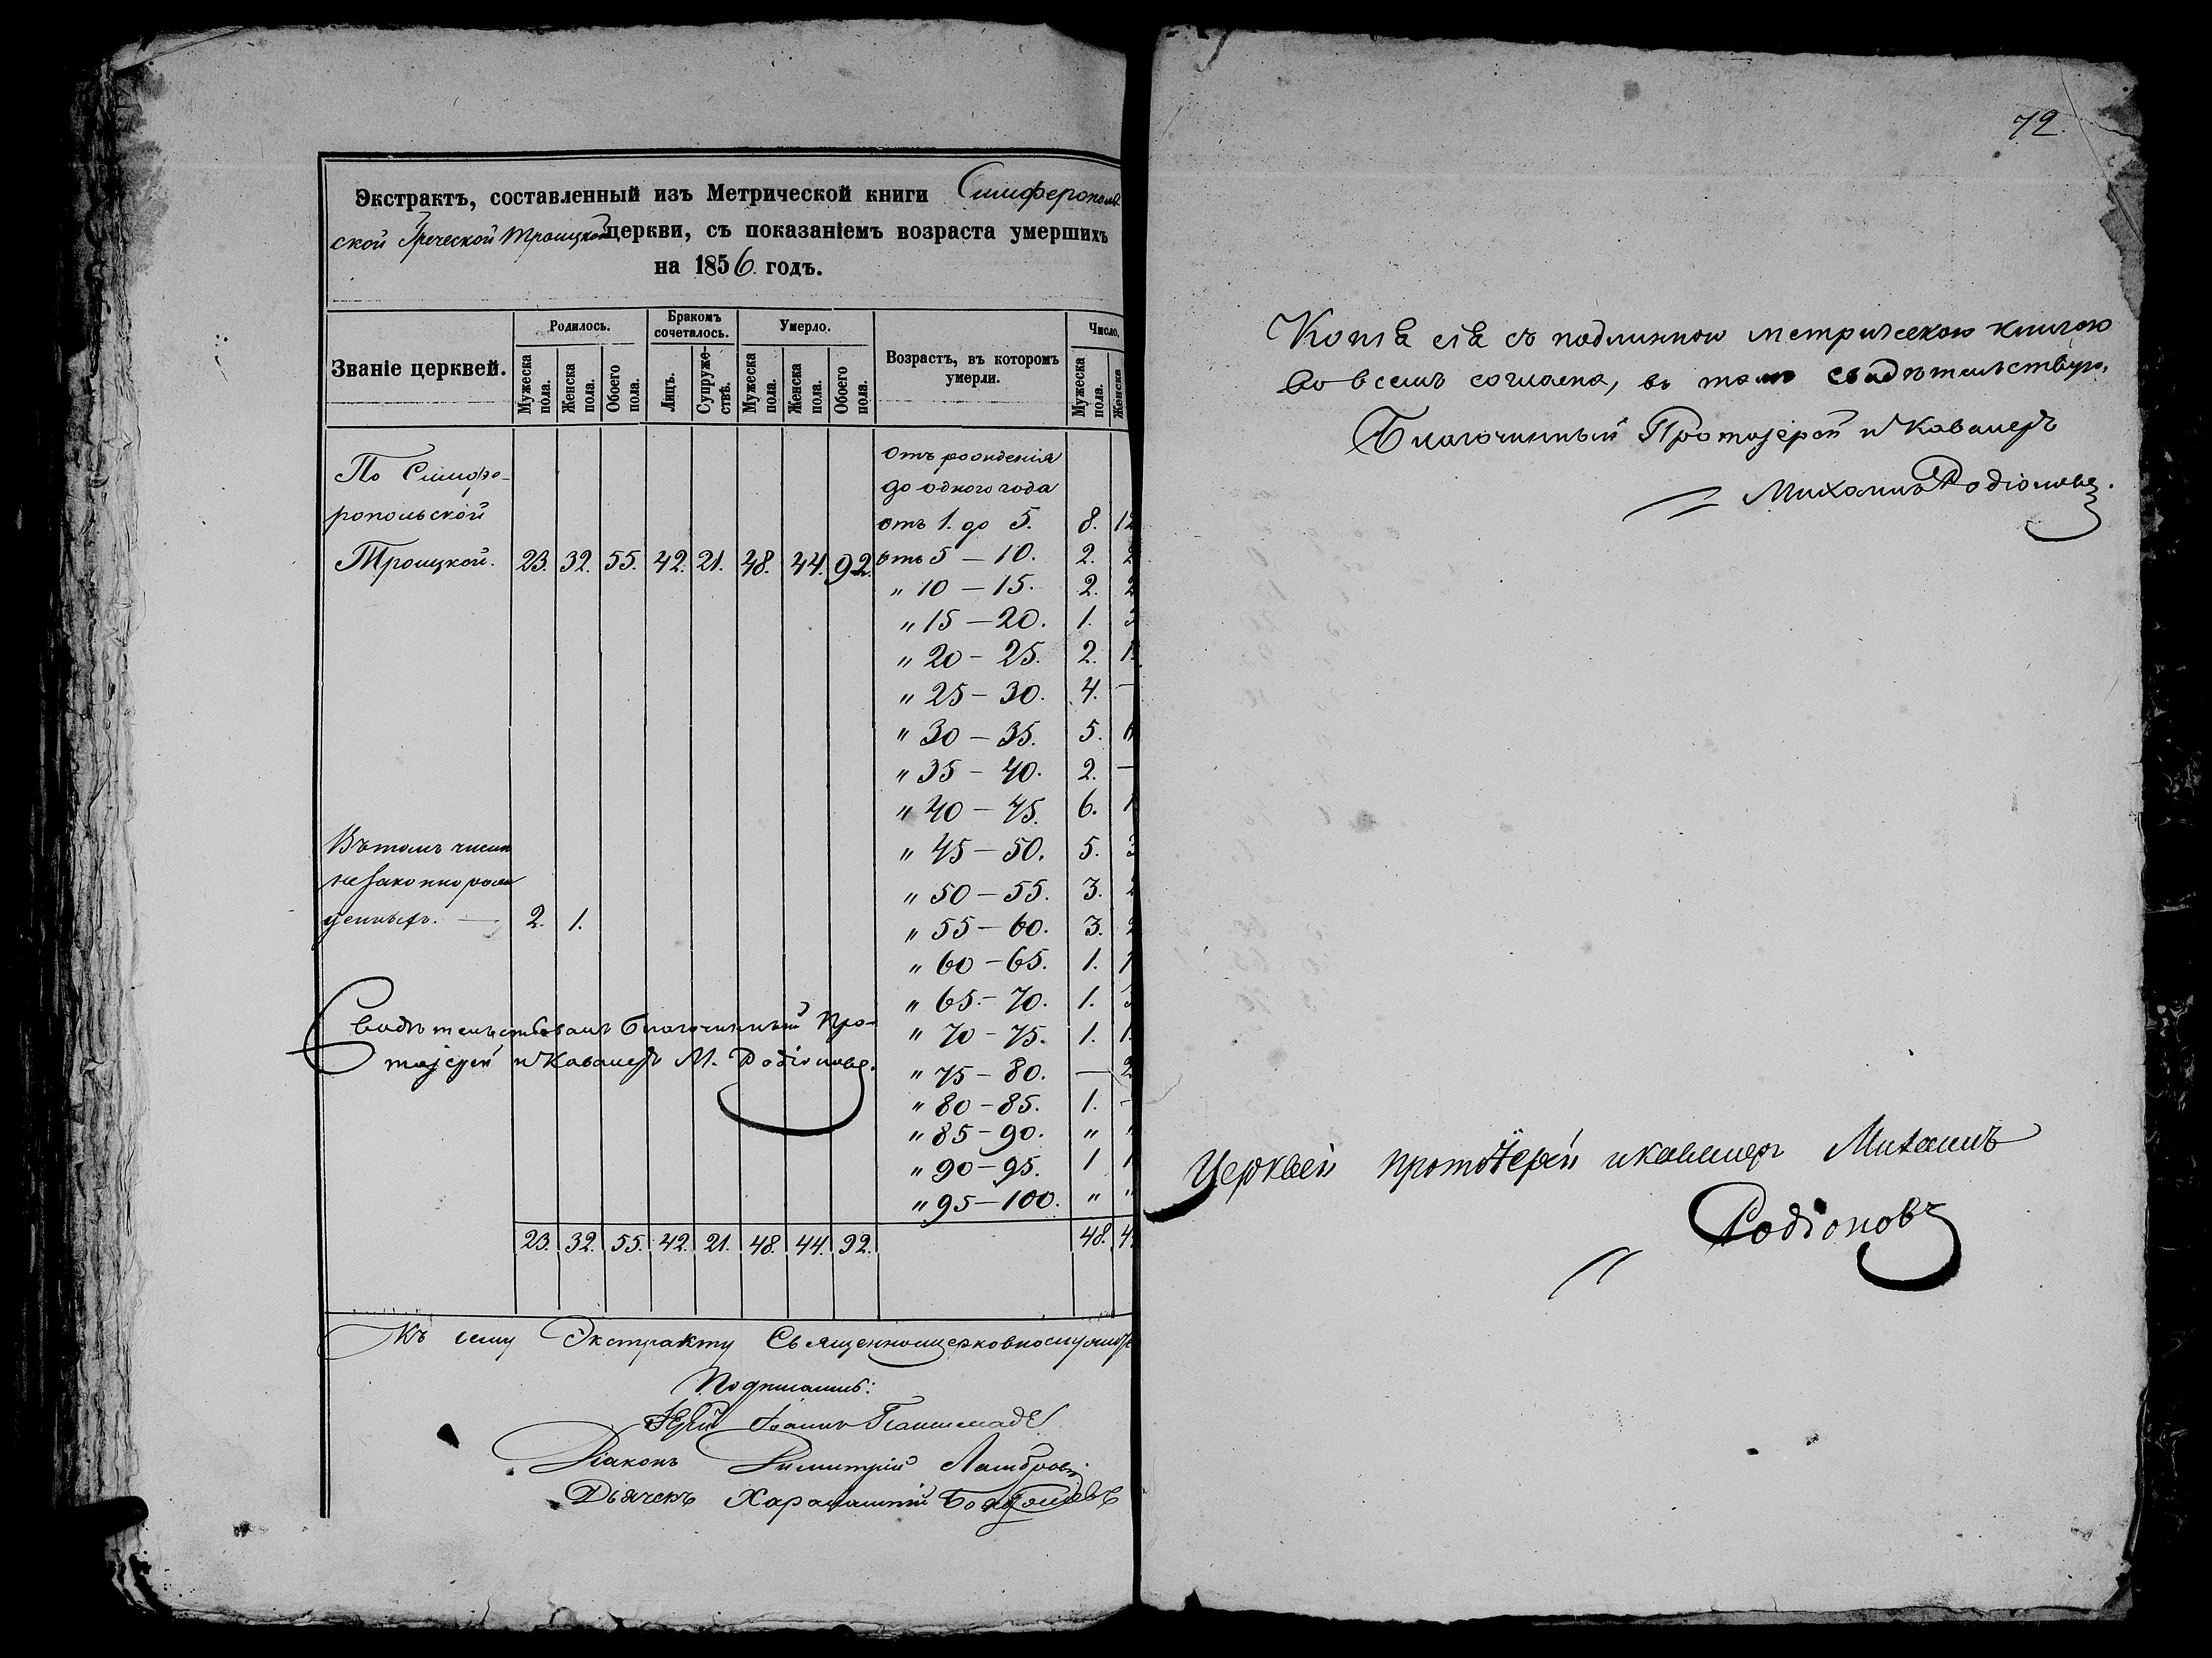 Экстрактъ, составленный изъ Метрической книги Симферополь
ской Греческой Троицкой церкви, съ показаніемъ возраста умершихъ
на 1856. годъ.
Званіе церквей.
Родилось.
Мужеска пола.
Женска пола.
Обоего пола.
Бракомъ сочеталось.
Лицъ.
Супруже-ствъ.
Умерло.
Мужеска пола.
Женска пола.
Обоего пола.
Возрастъ, въ которомъ умерли.
Число.
Мужеска пола.
Женска
По Симфе-
ропольской
Троицкой. 23. 32. 55. 42. 21. 48. 44. 92.
Отъ рожденія
до одного года
отъ 1. до 5. 8. 12
отъ 5 — 10. 2. 2
" 10 — 15. 2. 2
" 15 — 20. 1. 3
" 20 — 25. 2. 1.
" 25 — 30. 4. —
" 30 — 35. 5.
" 35 — 40. 2. —
" 40 — 45. 6. 1
" 45 — 50. 5. 3
" 50 — 55. 3. 2
" 55 — 60. 3. 2
" 60 — 65. 1. 1
" 65. — 70. 1. 3
" 70 — 75. 1. 1.
" 75 — 80. — 2
" 80 — 85. 1. —
" 85 — 90. " "
" 90 — 95. 1 1
" 95 — 100. " "
Въ томъ числѣ
незаконнорож
денныхъ. — 2. 1.
Свидѣтельствовалъ Благочинный Про-
тоіерей и Кавалеръ М. Родіоновъ.
23. 32. 55. 42. 21. 48. 44. 92. 48. 4
Къ сему Экстракту Священноцерковнослужит
Подписались:
Іерей Іоаннъ
Діаконъ Димитрій
Дьячекъ Харалампій
72.
Копія сія съ подлинною метрическою книгою
во всемъ согласна, въ томъ свидѣтельствую,
Благочинный Протоіерей и Кавалеръ
Михаилъ Родіоновъ.
Церквей протоіерей и кавалеръ Михаилъ
Родіоновъ